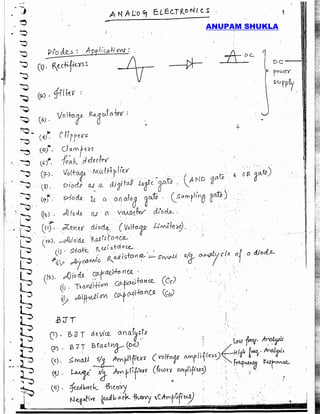 ANALOG ELECTRONICS
1
ANUPAM SHUKLA
Diodes: Applications:
(1). Rectifiers:
DC
DC
power
supply
(2). filter:
(3). Voltage Regulator:
(4). Clippers
(5). Clampers
(6). Peak detector
(7). Voltage Multiplier
(8). Diode as a digital logic gate. (AND gate & OR gate)
(9). Diode is a analog gate. (Sampling gate)
(10). diode as a varactor diode.
(11). Zener diode (Voltage Limiters).
(12). diode Resistance
(i). Static Resistance
(ii). dynamic Resistance in small s/g analysis of a diode.
(13). diode capacitance.
(i). Transition capacitance (CT)
(ii). diffusion capacitance (CD)
BJT
(1). BJT device analysis
(2). BJT Biasing (DC)
(3). Small s/g Amplifiers (voltage amplifiers)
Low freq. Analysis
High freq. Analysis
frequency Response
(4). Large s/g Amplifiers (Power amplifiers)
(5). feedback theory
Negative feedback theory (Amplifiers)